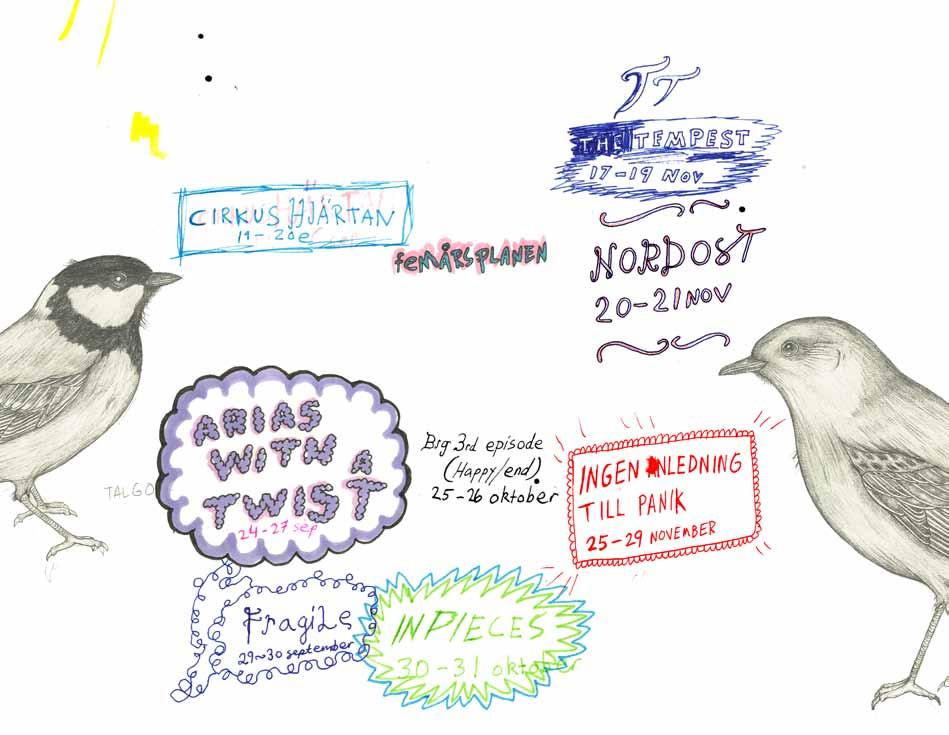 TT
THE TEMPEST
17-19 NOV
CIRKUS HJÄRTAN
feMÅRSPLANEN
NORDOST
20-21 NOV
ARIAS
WITH A
TWIST
24-27 sep
TALGO
Big 3rd episode
(Happy/end)
25-26 oktober
INGEN ANLEDNING
TILL PANIK
25-29 NOVEMBER
Fragile
29~30 september
IN PIECES
30-31 oktober